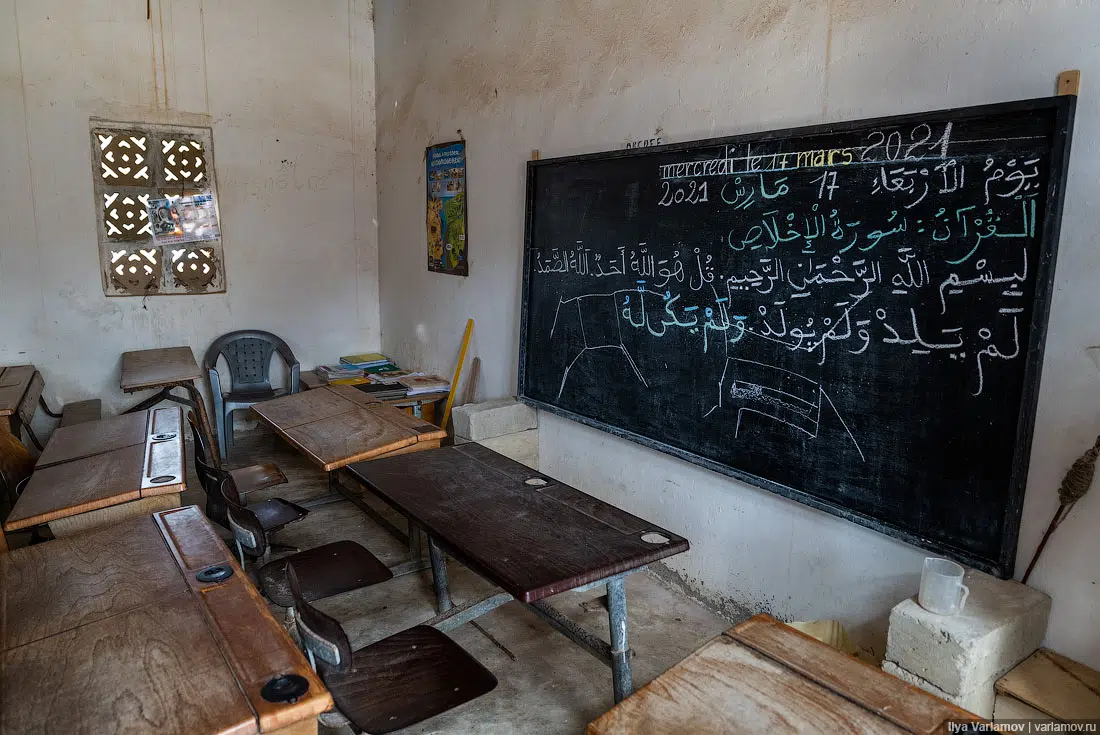 mercredi le 17 mars 2021
يَوْمُ الأَرْبَعَاءِ 17 مَارِسْ 2021
القُرْآنُ: سُورَةُ الْإِخْلَاصِ
بِسْمِ اللَّهِ الرَّحْمَنِ الرَّحِيمِ. قُلْ هُوَ اللَّهُ أَحَدٌ. اللَّهُ الصَّمَدُ
لَمْ يَلِدْ وَلَمْ يُولَدْ. وَلَمْ يَكُنْ لَهُ
Ilya Varlamov | varlamov.ru